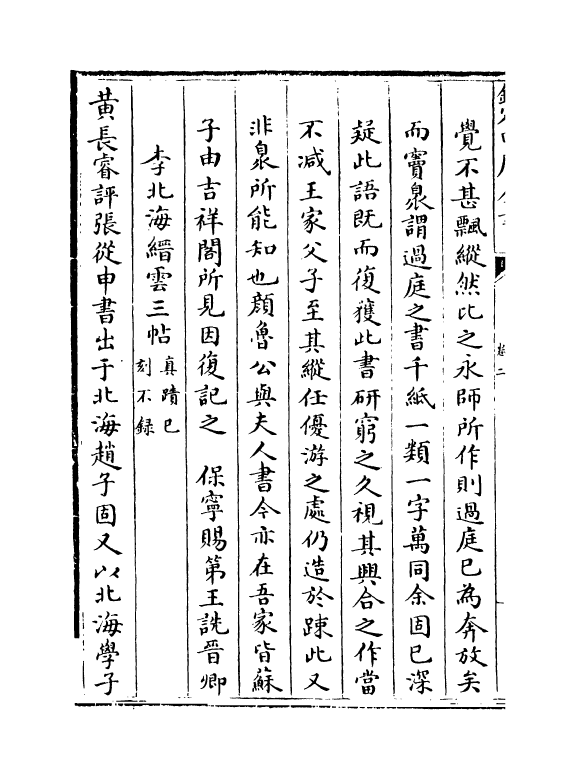 覺不甚飄縱然比之永師所作則過庭已為奔放矣
而竇臮謂過庭之書千紙一類一字萬同余固已深
疑此語既而復獲此書研窮之久視其興合之作當
不减王家父子至其縱任優游之處仍造於踈此又
非臮所能知也顔魯公與夫人書今亦在吾家皆蘇
子由吉祥閣所見因復記之　保寧賜第王詵晉卿
李北海縉雲三帖真蹟已刻不録
黄長睿評張從申書出于北海趙子固又以北海學子